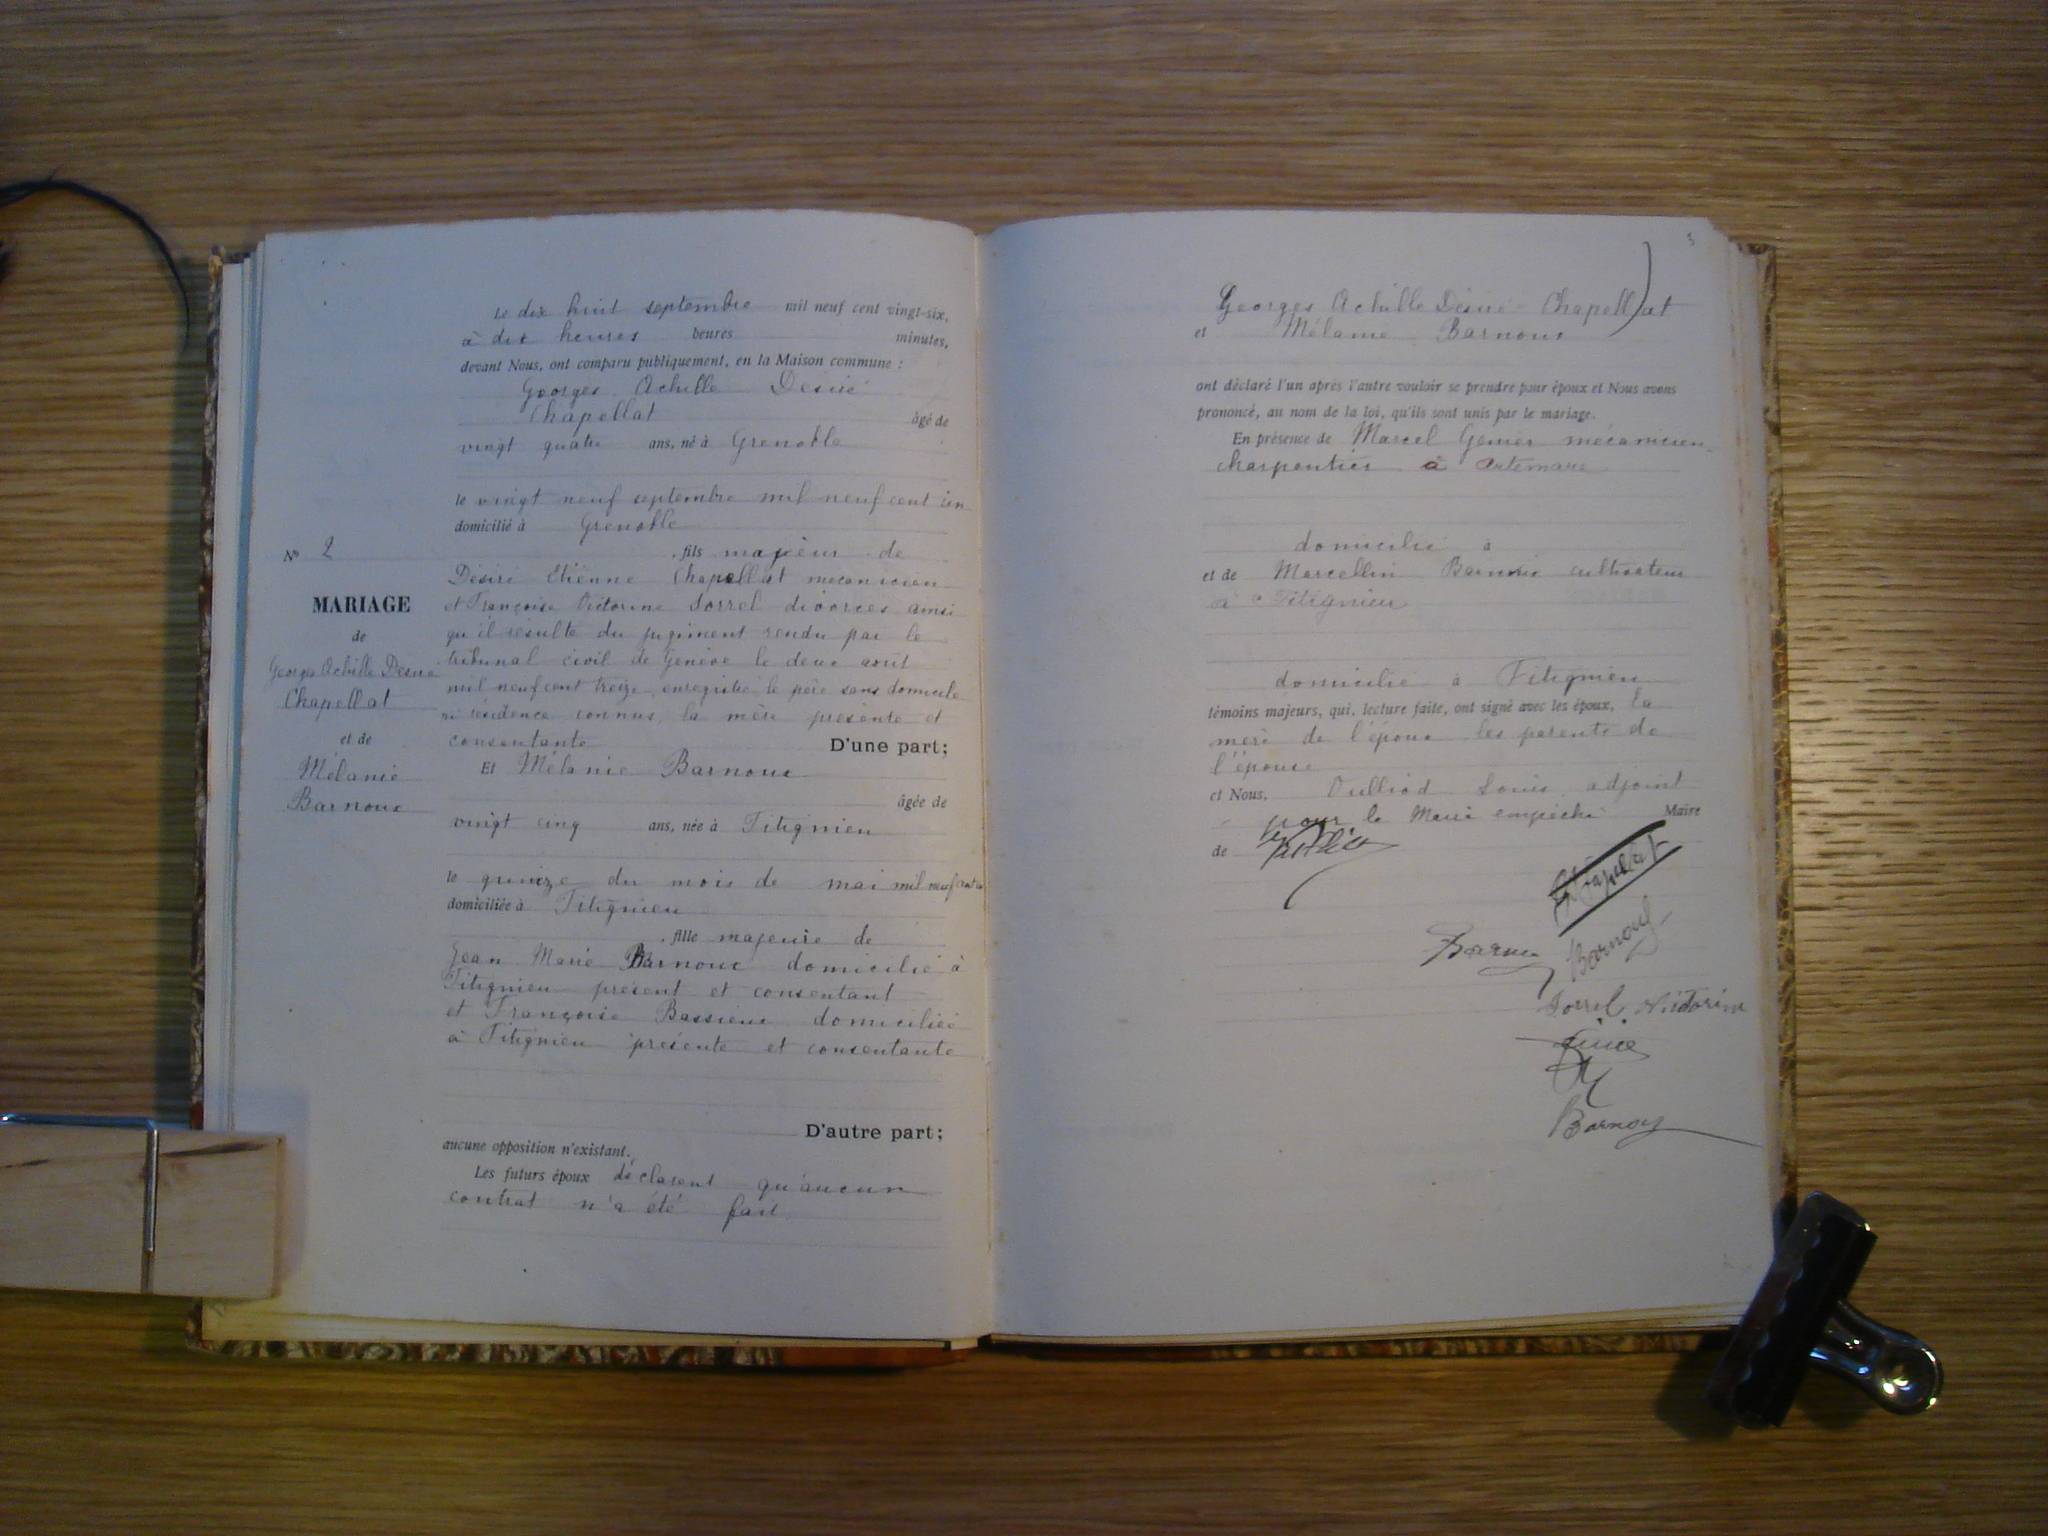 Le dix huit septembre mil neuf cent vingt-six,
à dix heures heures minutes,
devant Nous, ont comparu publiquement, en la Maison commune :
Georges Achille Desiré
Chapellat âgé de
vingt quatre ans, né à Grenoble
le vingt neuf septembre mil neuf cent un
domicilié à Grenoble
fils majeur de
Désiré Etienne Chapellat mécanicien
et Françoise Victorine Sorrel divorcés ainsi
qu'il résulte du jugement rendu par le
tribunal civil de Genève le deux
mil neuf cent treize, enregistré le père sans domicile
ni résidence connus, la mère présente et
consentante D'une part;
Et Mélanie Barnoux
âgée de
vingt cinq ans, née à Fitignieu
le quinze du mois de mai mil neuf cent
domiciliée à Fitignieu
fille majeure de
Jean Marie Barnoux domicilié à
Fitignieu présent et consentant
et Françoise domiciliée
à Fitignieu présente et consentante
D'autre part;
aucune opposition n'existant.
Les futurs époux déclarent qu'aucun
contrat n'a été fait
N° 2
MARIAGE
de
Georges Achille Desiré
Chapellat
et de
Mélanie
Barnoux
3
Georges Achille Désiré Chapellat
et Mélanie Barnoux
ont déclaré l'un après l'autre vouloir se prendre pour époux et Nous avons
prononcé, au nom de la loi, qu'ils sont unis par le mariage.
En présence de Marcel mécanicien
charpentier à Artemare
domicilié à
et de Marcellin Barnoux cultivateur
à Fitignieu
domicilié à Fitignieu
témoins majeurs, qui, lecture faite, ont signé avec les époux, la
mère de l'époux les parents de
l'épouse
et Nous, Louis adjoint
pour le Maire empêché Maire
de
Chapellat
Barnoux
Barnoux
Sorrel Victorine
Barnoux